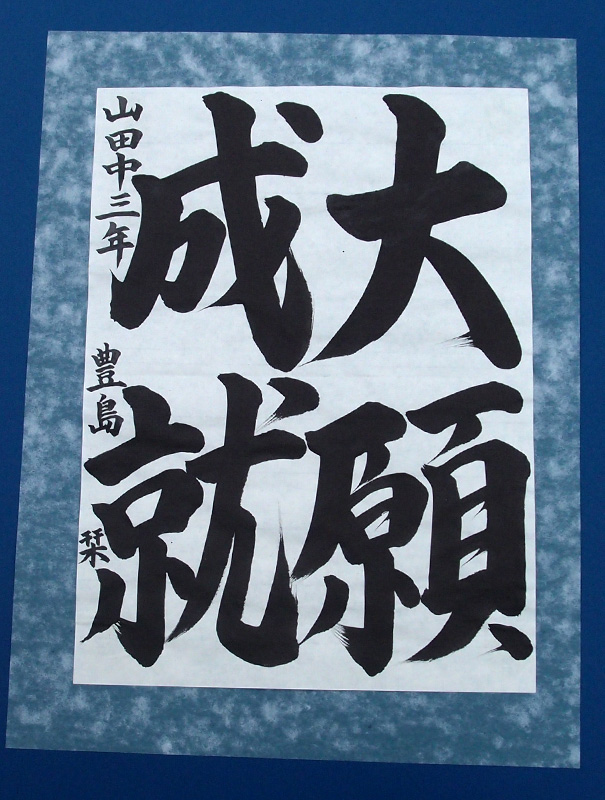 大願
成就
山田中三年 豊島 栞